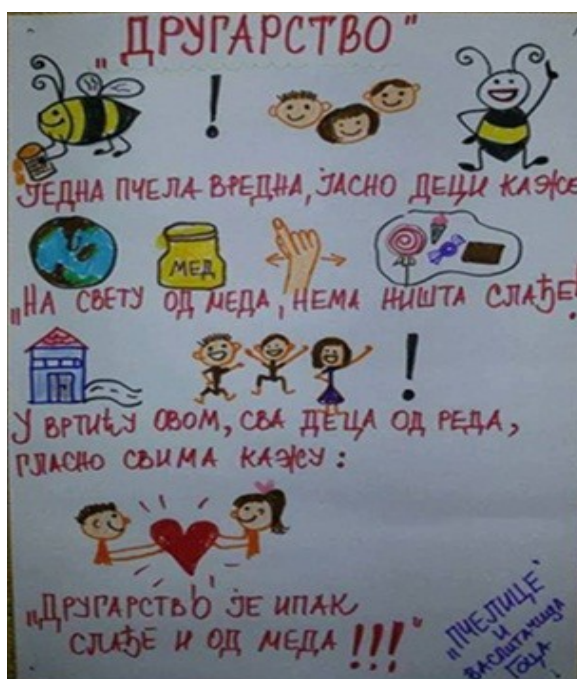 „ДРУГАРСТВО"
ЈЕДНА ПЧЕЛА ВРЕДНА, ЈАСНО ДЕЦИ КАЖЕ
МЕД
„НА СВЕТУ ОД МЕДА, НЕМА НИШТА СЛАЂЕ!
У ВРТИЋУ ОВОМ, СВА ДЕЦА ОД РЕДА,
ГЛАСНО СВИМА КАЖУ:
„ДРУГАРСТВО ЈЕ ИПАК
СЛАЂЕ И ОД МЕДА !!!"
„ПЧЕЛИЦЕ"
И
ВАСПИТАЧИЦА
ГОЦА